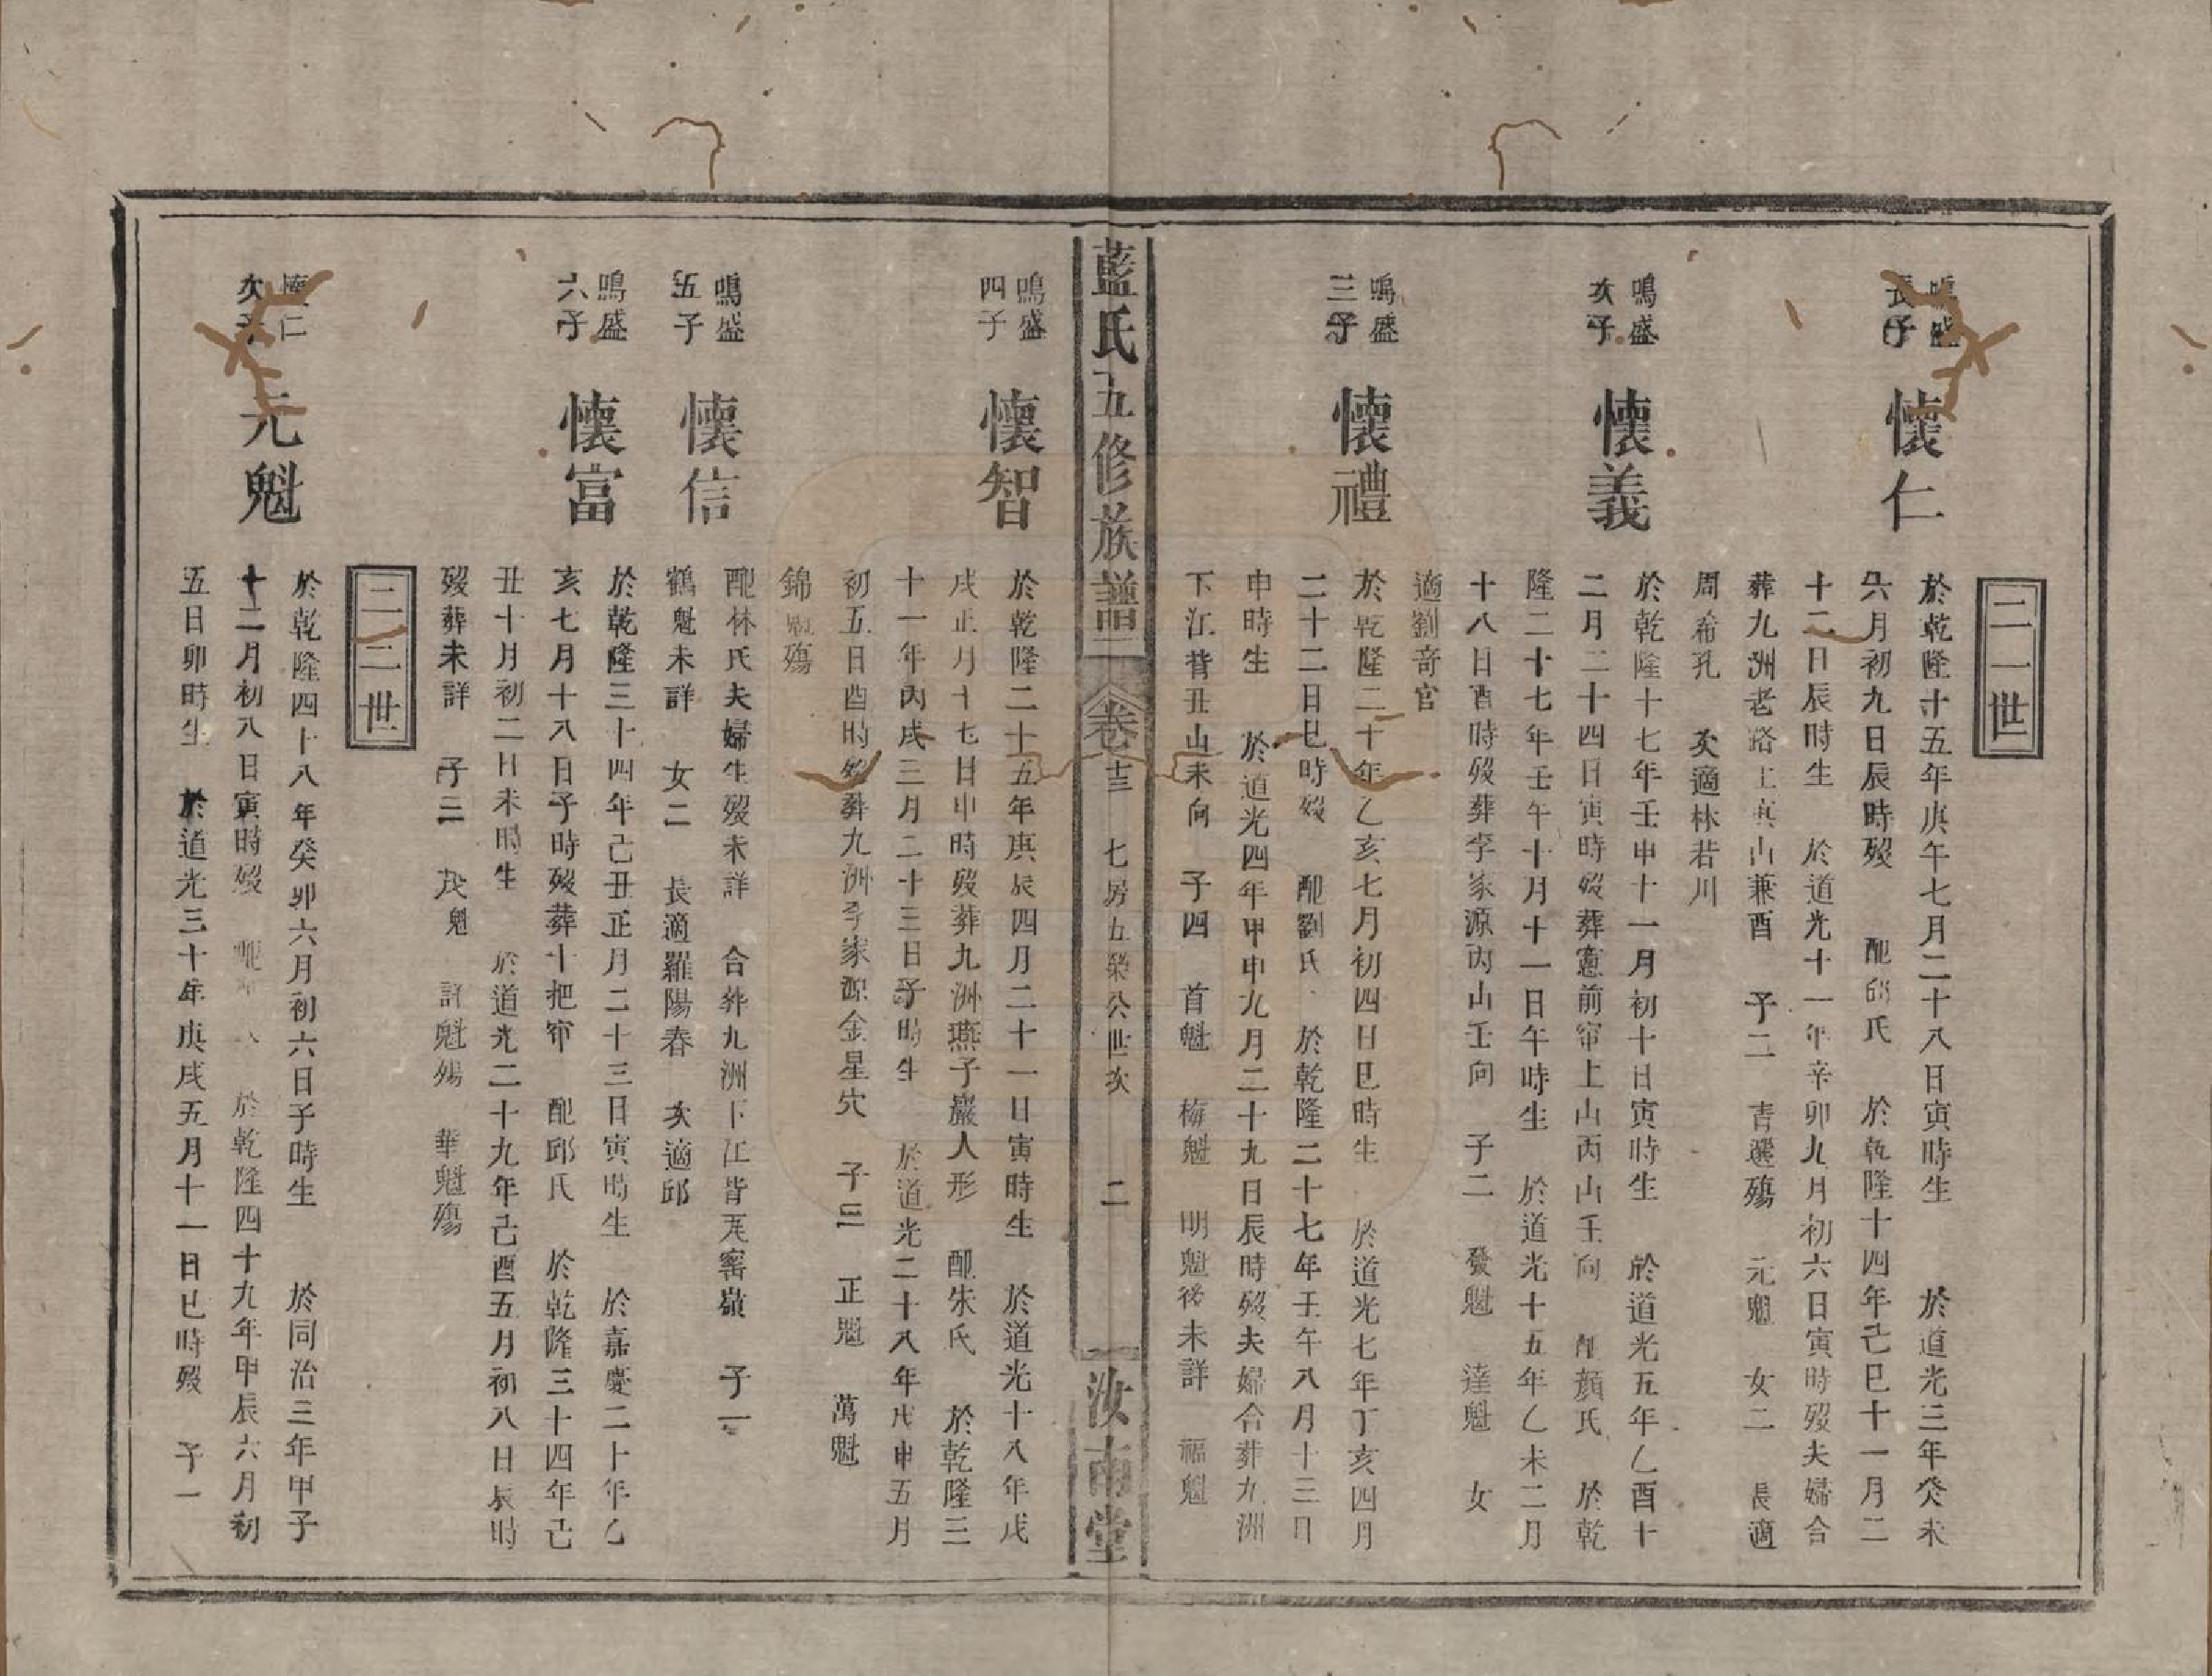 二一世
鳴盛
長子
懷仁
於乾隆十五年庚午七月二十八日寅時生 於道光三年癸未
六月初九日辰時歿 配邱氏 於乾隆十四年己巳十一月二
十二日辰時生 於道光十一年辛卯九月初六日寅時歿夫婦合
葬九洲老路上 山兼酉 子二 吉選殤 元魁 女二 長適
周希孔 次適林若川
鳴盛
次子
懷義
於乾隆十七年壬申十一月初十日寅時生 於道光五年乙酉十
二月二十四日寅時歿葬憲前窜上山丙山壬向 配顏氏 於乾
隆二十七年壬午十月十一日午時生 於道光十五年乙未二月
十八日酉時歿葬李家源丙山壬向 子二 發魁 達魁 女
適劉奇官
鳴盛
三子
懷禮
於乾隆二十年乙亥七月初四日巳時生 於道光七年丁亥四月
二十二日巳時歿 配劉氏 於乾隆二十七年壬午八月十三日
申時生 於道光四年甲申九月二十九日辰時歿夫婦合葬九洲
下江背丑山未向 子四 首魁 梅魁 明魁後未詳 福魁
藍氏五修族譜 卷十三 七房五榮公世次 二 汝南堂
鳴盛
四子
懷智
於乾隆二十五年庚辰四月二十一日寅時生 於道光十八年戊
戌正月十七日申時歿葬九洲燕子巖人形 配朱氏 於乾隆三
十一年丙戌三月二十三日子時生 於道光二十八年戊申五月
初五日酉時歿葬九洲李家源金星穴 子三 正魁 萬魁
錦魁殤
鳴盛
五子
懷信
配林氏夫婦生歿未詳 合葬九洲下江背瓦窰嶺 子一
鶴魁未詳 女二 長適羅陽春 次適邱
鳴盛
六子
懷富
於乾隆三十四年己丑正月二十三日寅時生 於嘉慶二十年乙
亥七月十八日子時歿葬十把窜 配邱氏 於乾隆三十四年己
丑十月初二日未時生 於道光二十九年己酉五月初八日辰時
歿葬未詳 子三 茂魁 許魁殤 華魁殤
二二世
懷仁
次子
元魁
於乾隆四十八年癸卯六月初六日子時生 於同治三年甲子
十二月初八日寅時歿 配 於乾隆四十九年甲辰六月初
五日卯時生 於道光三十年庚戌五月十一日巳時歿 子一